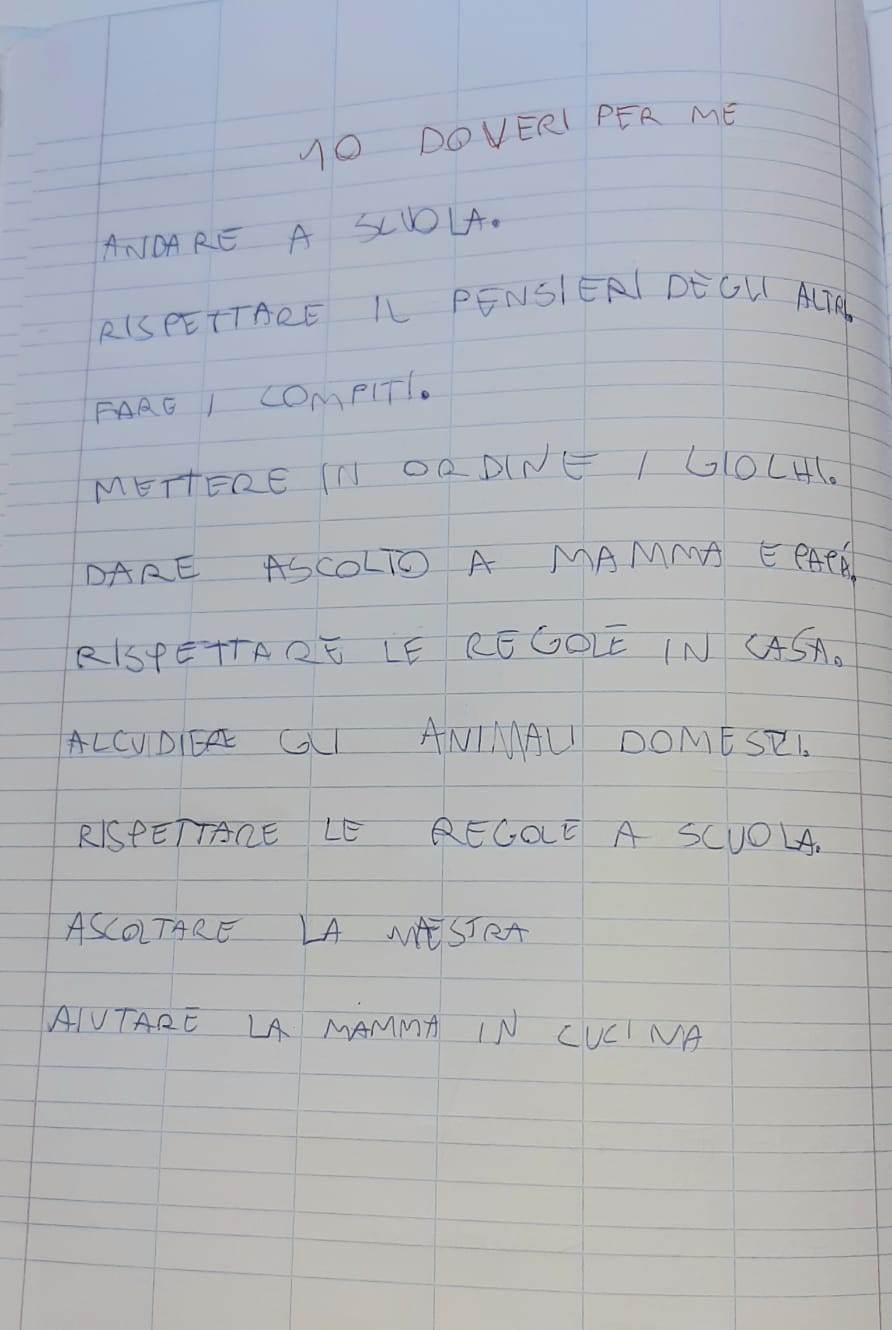 10 DOVERI PER ME
ANDARE A SCUOLA.
RISPETTARE IL PENSIERI DEGLI ALTRI.
FARE I COMPITI.
METTERE IN ORDINE I GIOCHI.
DARE ASCOLTO A MAMMA E PAPÁ.
RISPETTARE LE REGOLE IN CASA.
ALCUDIERE GLI ANIMALI
RISPETTARE LE REGOLE A SCUOLA.
ASCOLTARE LA MAESTRA
AIUTARE LA MAMMA IN CUCINA